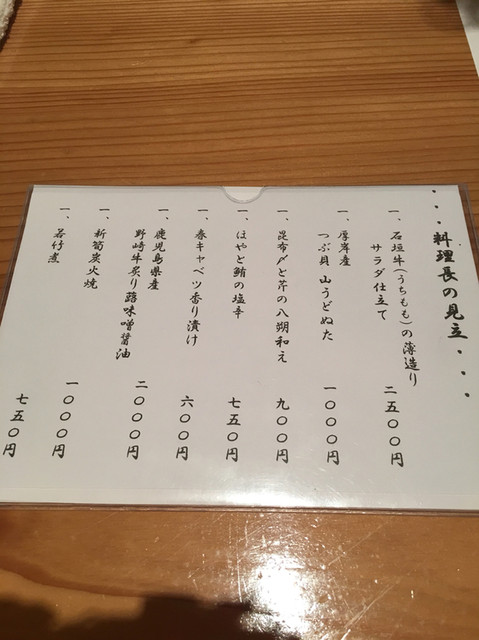 ・・・料理長の見立・・・
一、石垣牛(うちもも)の薄造り
サラダ仕立て 二五〇〇円
一、厚岸産
つぶ貝 山うどぬた 一〇〇〇円
一、昆布〆と芹の八朔和え 九〇〇円
一、ほやと鮪の塩辛 七五〇円
一、春キャベツ香り漬け 六〇〇円
一、鹿児島県産
野崎牛炙り蕗味噌醤油 二〇〇〇円
一、新筍炭火焼 一〇〇〇円
一、若竹煮 七五〇円